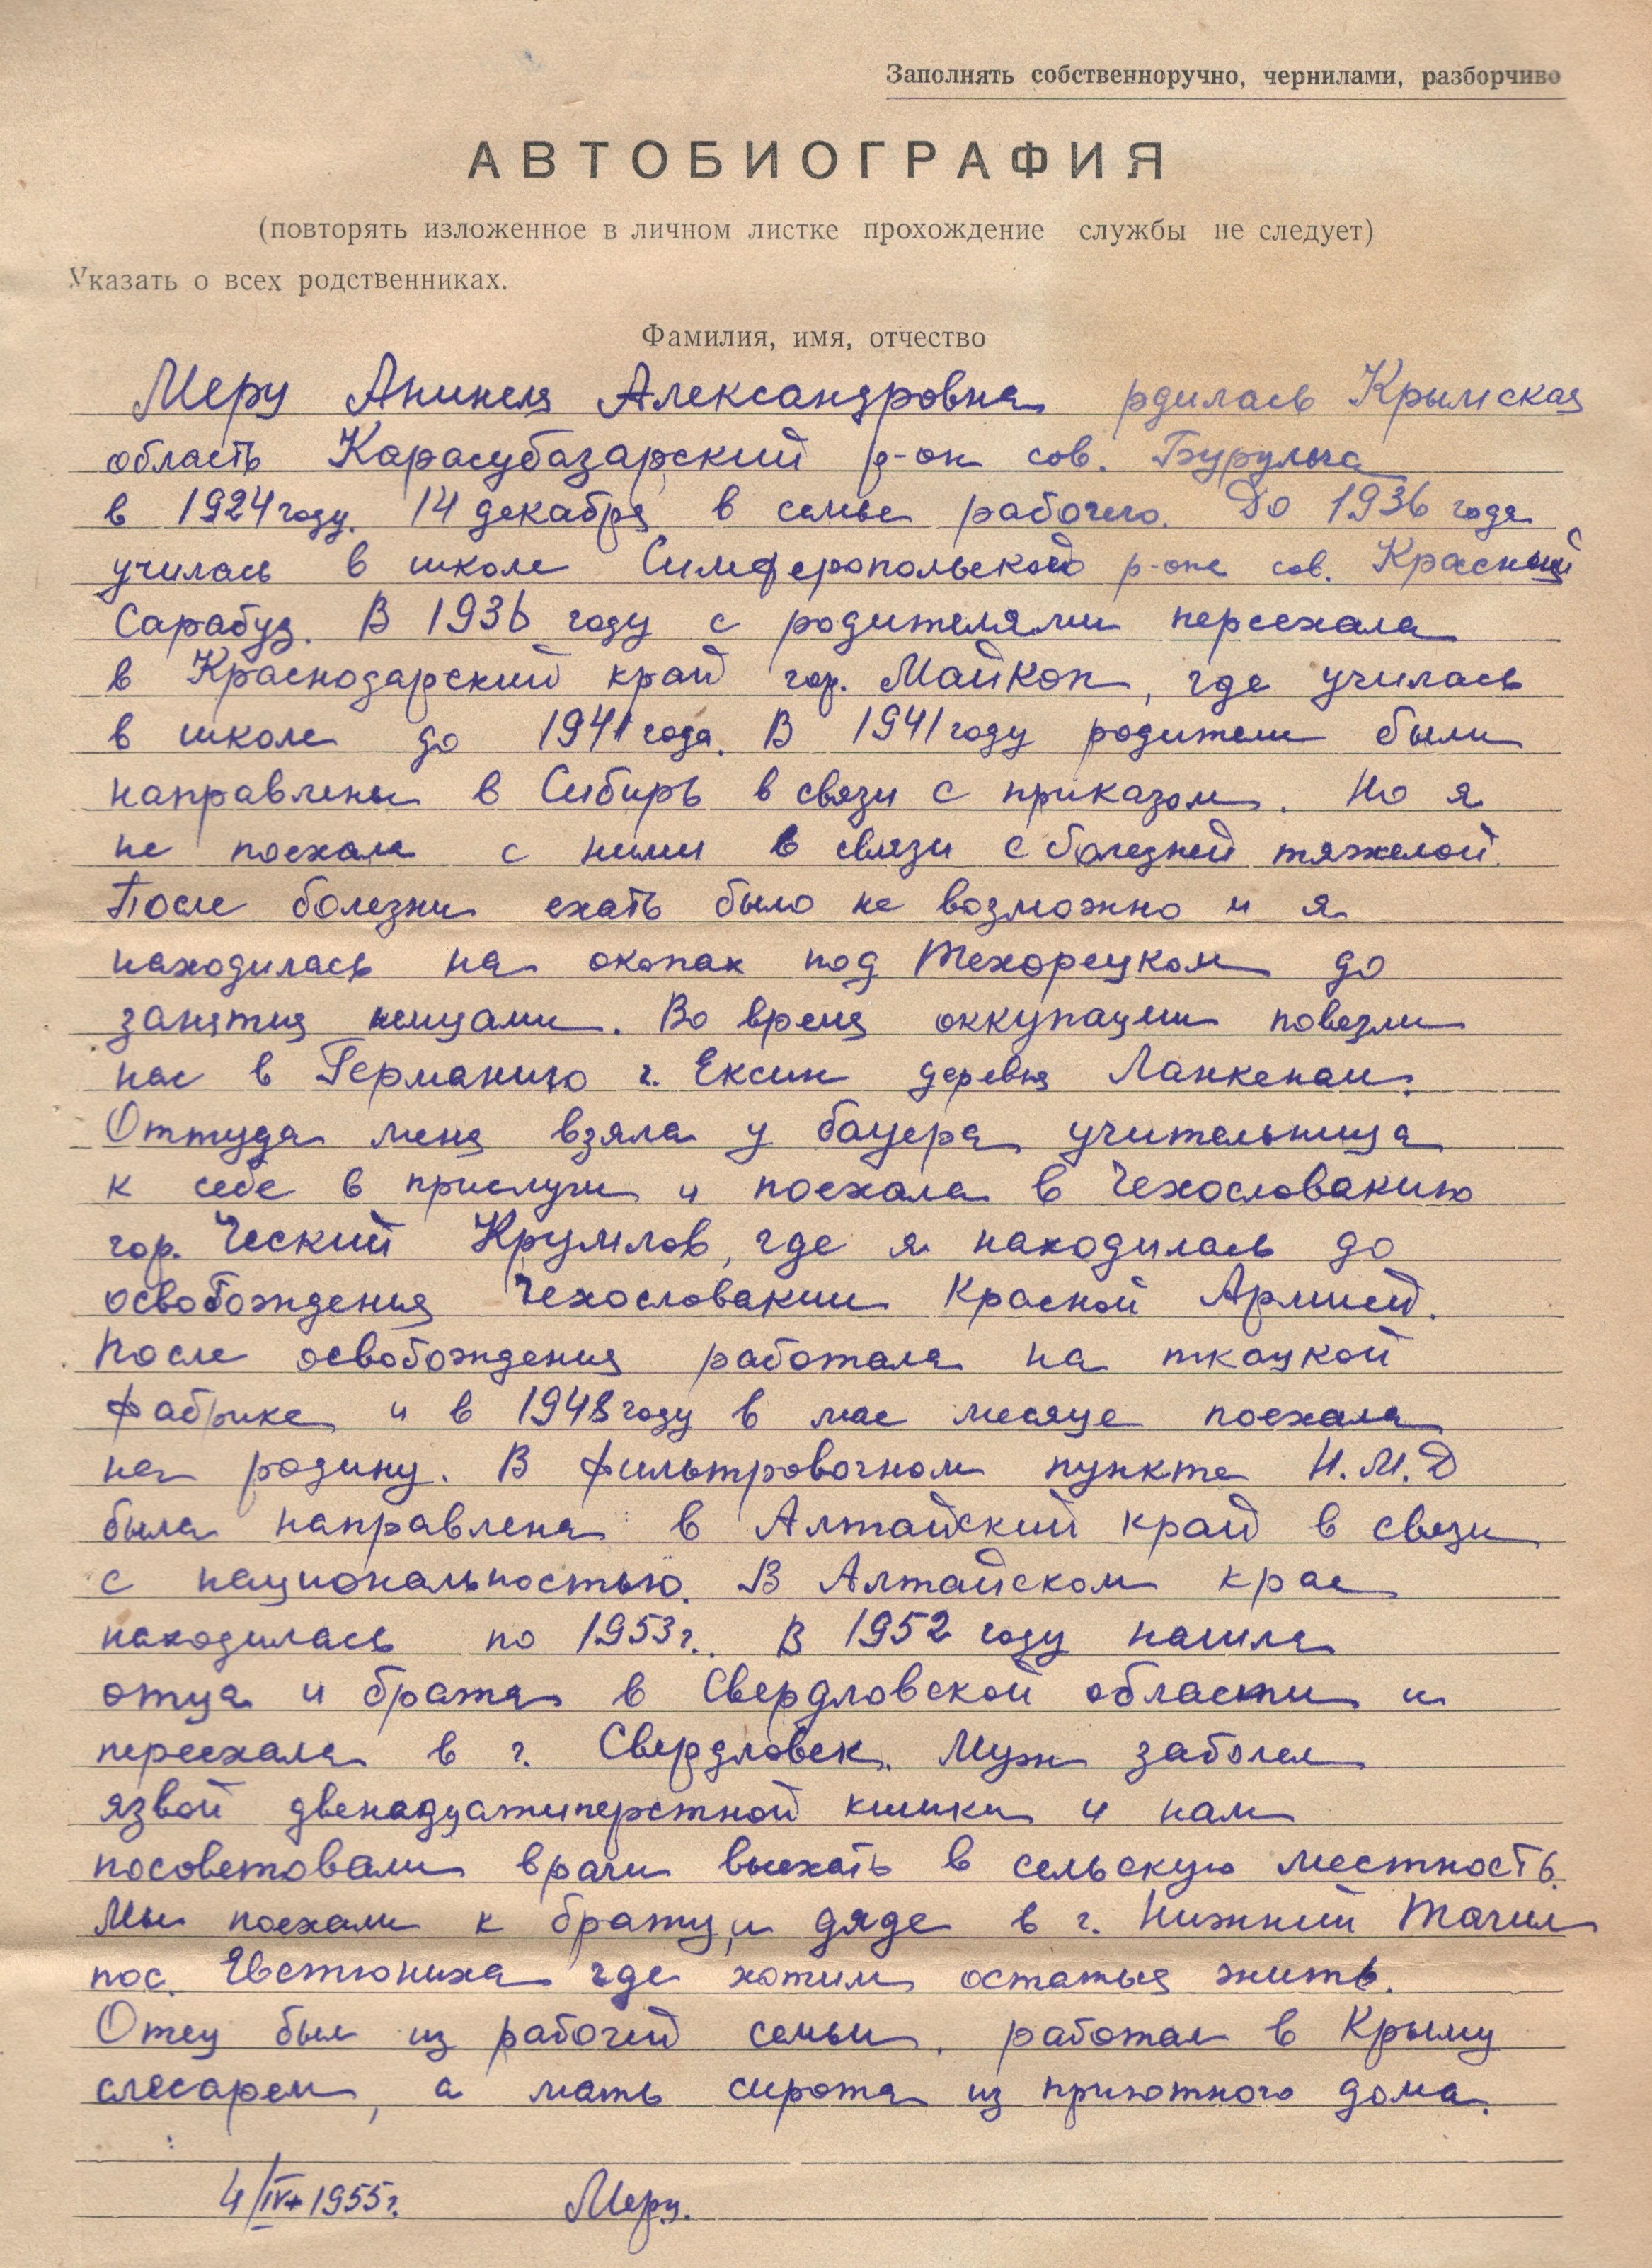 Заполнять собственноручно, чернилами, разборчиво
АВТОБИОГРАФИЯ
(повторять изложенное в личном листке прохождение службы не следует)
Указать о всех родственниках.
Фамилия, имя, отчество
Меру Анинеля Александровна рдилась Крымская
область Карасубазарский р-он сов. Бурульча
в 1924 году. 14 декабря в семье рабочего. До 1936 года
училась в школе Симферопольского р-она сов. Красный
Сарабуз. В 1936 году с родителями переехала
в Краснодарский край гор. Майкоп, где училась
в школе до 1941 года. В 1941 году родители были
направлены в Сибирь в связи с приказом. Но я
не поехала с ними в связи с болезней тяжелой.
После болезни ехать было не возможно и я
находилась на окопах под Техорецком до
занятия немцами. Во время оккупации повезли
нас в Германию г. Ексин деревня Ланкенаи.
Оттуда меня взяла у бауера учительница
к себе в прислуги и поехала в Чехословакию
гор. Ческий Крумлов, где я находилась до
освобождения Чехословакии Красной Армией.
После освобождения работала на ткацкой
фабрике и в 1948 году в мае месяце поехала
на родину. В фильтровочном пункте Н.М.Д
была направлена в Алтайский край в связи
с национальностью. В Алтайском крае
находилась по 1953 г.. В 1952 году нашла
отца и брата в Свердловской области и
переехала в г. Свердловск. Муж заболел
язвой двенадцатиперстной кишки и нам
посоветовали врачи выехать в сельскую местность.
Мы поехали к брату, и дяде в г. Нижний Тагил
пос. Евстюниха где хотим остаться жить.
Отец был из рабочей семьи, работал в Крыму
слесарем, а мать сирота из приютного дома.
4/IV-1955г. Меру.